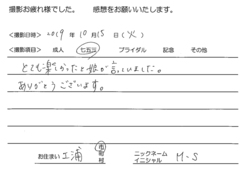 撮影お疲れ様でした。 感想をお願いいたします。
<撮影日時> 2019年 10月 15日(火)
<撮影項目> 成人 七五三 ブライダル 記念 その他
とても楽しかったと娘が言っていました。
ありがとうございます。
お住まい 土浦 市町村 ニックネーム イニシャル M・S